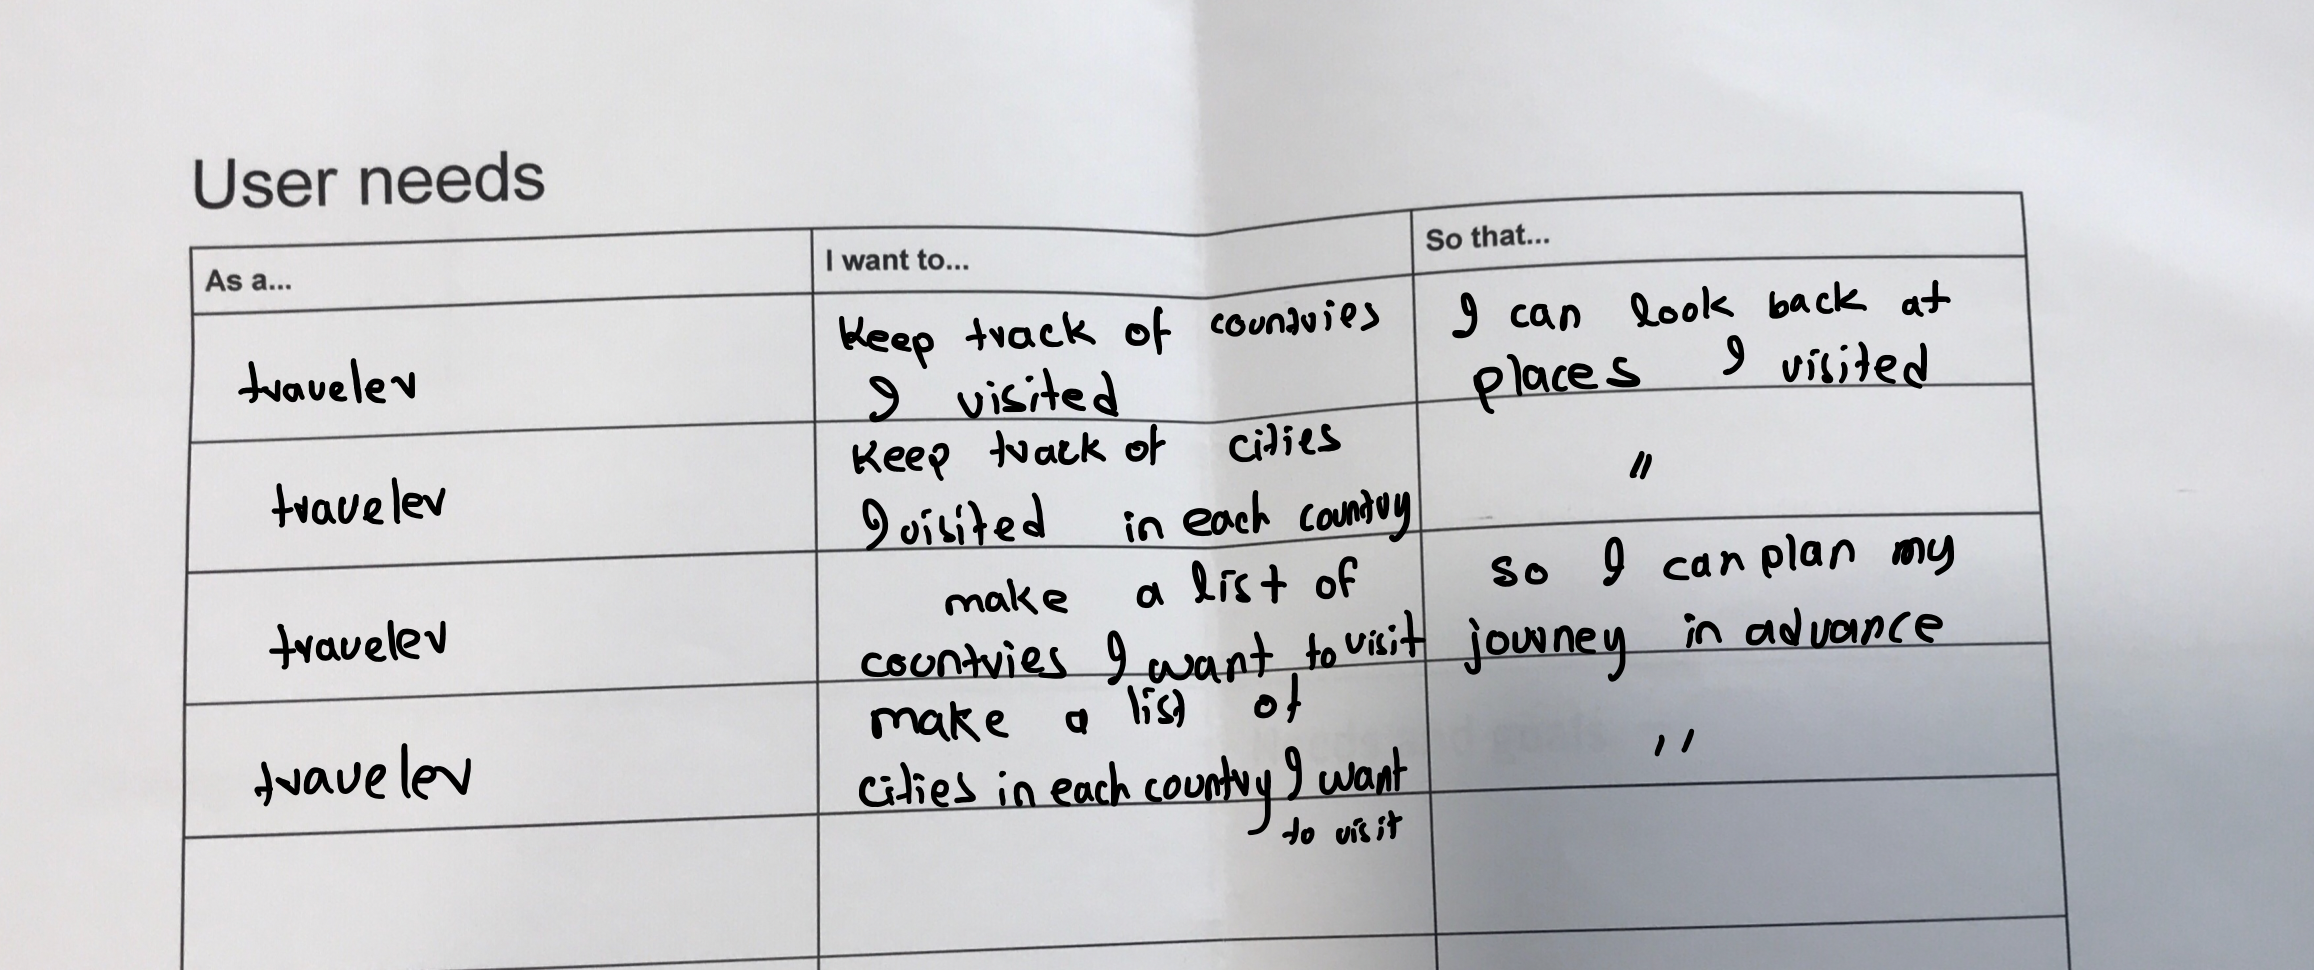 User needs
As a...
I want to...
So that...
traveler
Keep track of countries
I visited
I can look back at
places I visited
traveler
Keep track of cities
I visited in each country
"
traveler
make a list of
countries I want to visit
so I can plan my
journey in advance
traveler
make a list of
cities in each country I want
to visit
"